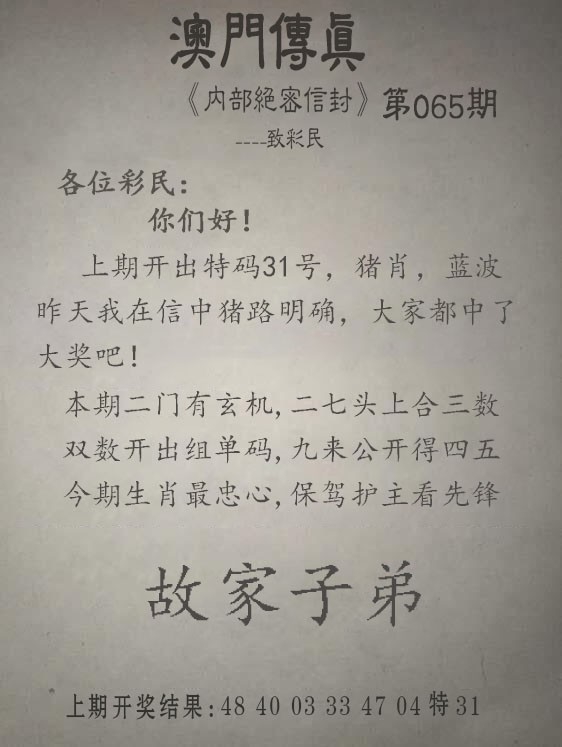 澳門傳真
《内部絕密信封》第065期
----致彩民
各位彩民:
你们好!
上期开出特码31号，猪肖，蓝波
昨天我在信中猪路明确，大家都中了
大奖吧!
本期二门有玄机,二七头上合三数
双数开出组单码,九来公开得四五
今期生肖最忠心,保驾护主看先锋
故家子弟
上期开奖结果:48 40 03 33 47 04 特 31